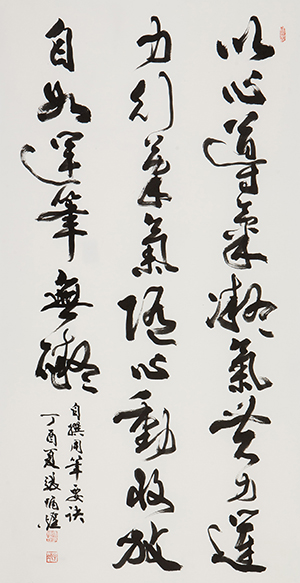 以心導氣凝氣力運
力行筆氣隨心動收放
自如運筆無礙
自撰用筆要訣
丁酉夏張炳煌